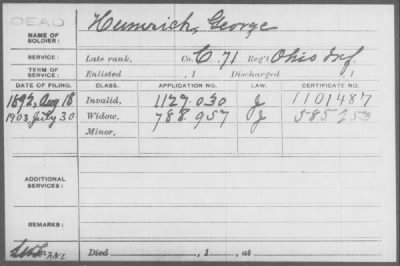 DEAD
NAME OF SOLDIER: Heimrich, George
SERVICE: Late rank, Co. C. 71 Reg't Ohio Inf.
TERM OF SERVICE: Enlisted , 1 Discharged , 1
DATE OF FILING. CLASS. APPLICATION NO. LAW. CERTIFICATE NO.
1892, Aug 18 Invalid, 1127.030 J 1101487
1903 July 30 Widow, 788.957 J 585253
Minor,
ADDITIONAL SERVICES:
REMARKS:
Died , 1 , at